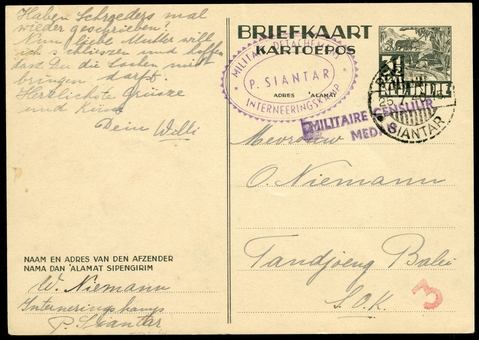 Haben Schroeders mal
wieder geschrieben?
Nun, liebe Mutter will
ich schliessen und hoffen
dass Du die Sachen mit
bringen darfst.
Herzlichste Grüsse
und Küsse
Dein Willi
NAAM EN ADRES VAN DEN AFZENDER
NAMA DAN ʼALAMAT SIPENGIRIM
W. Niemann
Interneringskamp
P. Siantar
BRIEFKAART
KARTOEPOS
ADRES ʼALAMAT
MILITAIR DETACHEMENT
P. SIANTAR
INTERNEERINGSKAMP
MILITAIRE CENSUUR
MED
SIANTAR
25
Mevrouw
O. Niemann
Tandjoeng Balei
S.O.K.
3